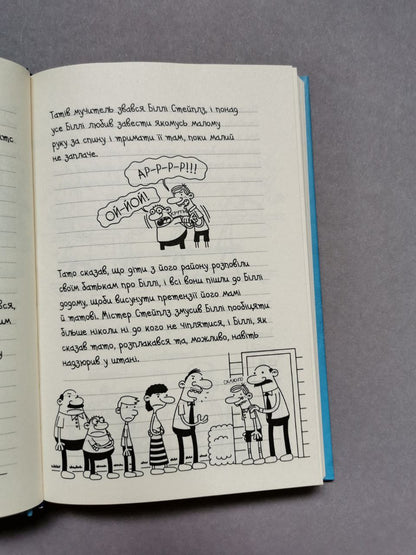 Татів мучитель звався Біллі Стейплз, і понад
усе Біллі любив завести якомусь малому
руку за спину і тримати її там, поки малий
не заплаче.
АР-Р-Р-Р!!!
ОЙ-ЙОЙ!
Тато сказав, що діти з його району розповіли
своїм батькам про Біллі, і всі вони пішли до Біллі
додому, щоби висунути претензії його мамі
й татові. Містер Стейплз змусив Біллі пообіцяти
більше ніколи ні до кого не чіплятися, і Біллі, як
сказав тато, розплакався та, можливо, навіть
надзюрив у штані.